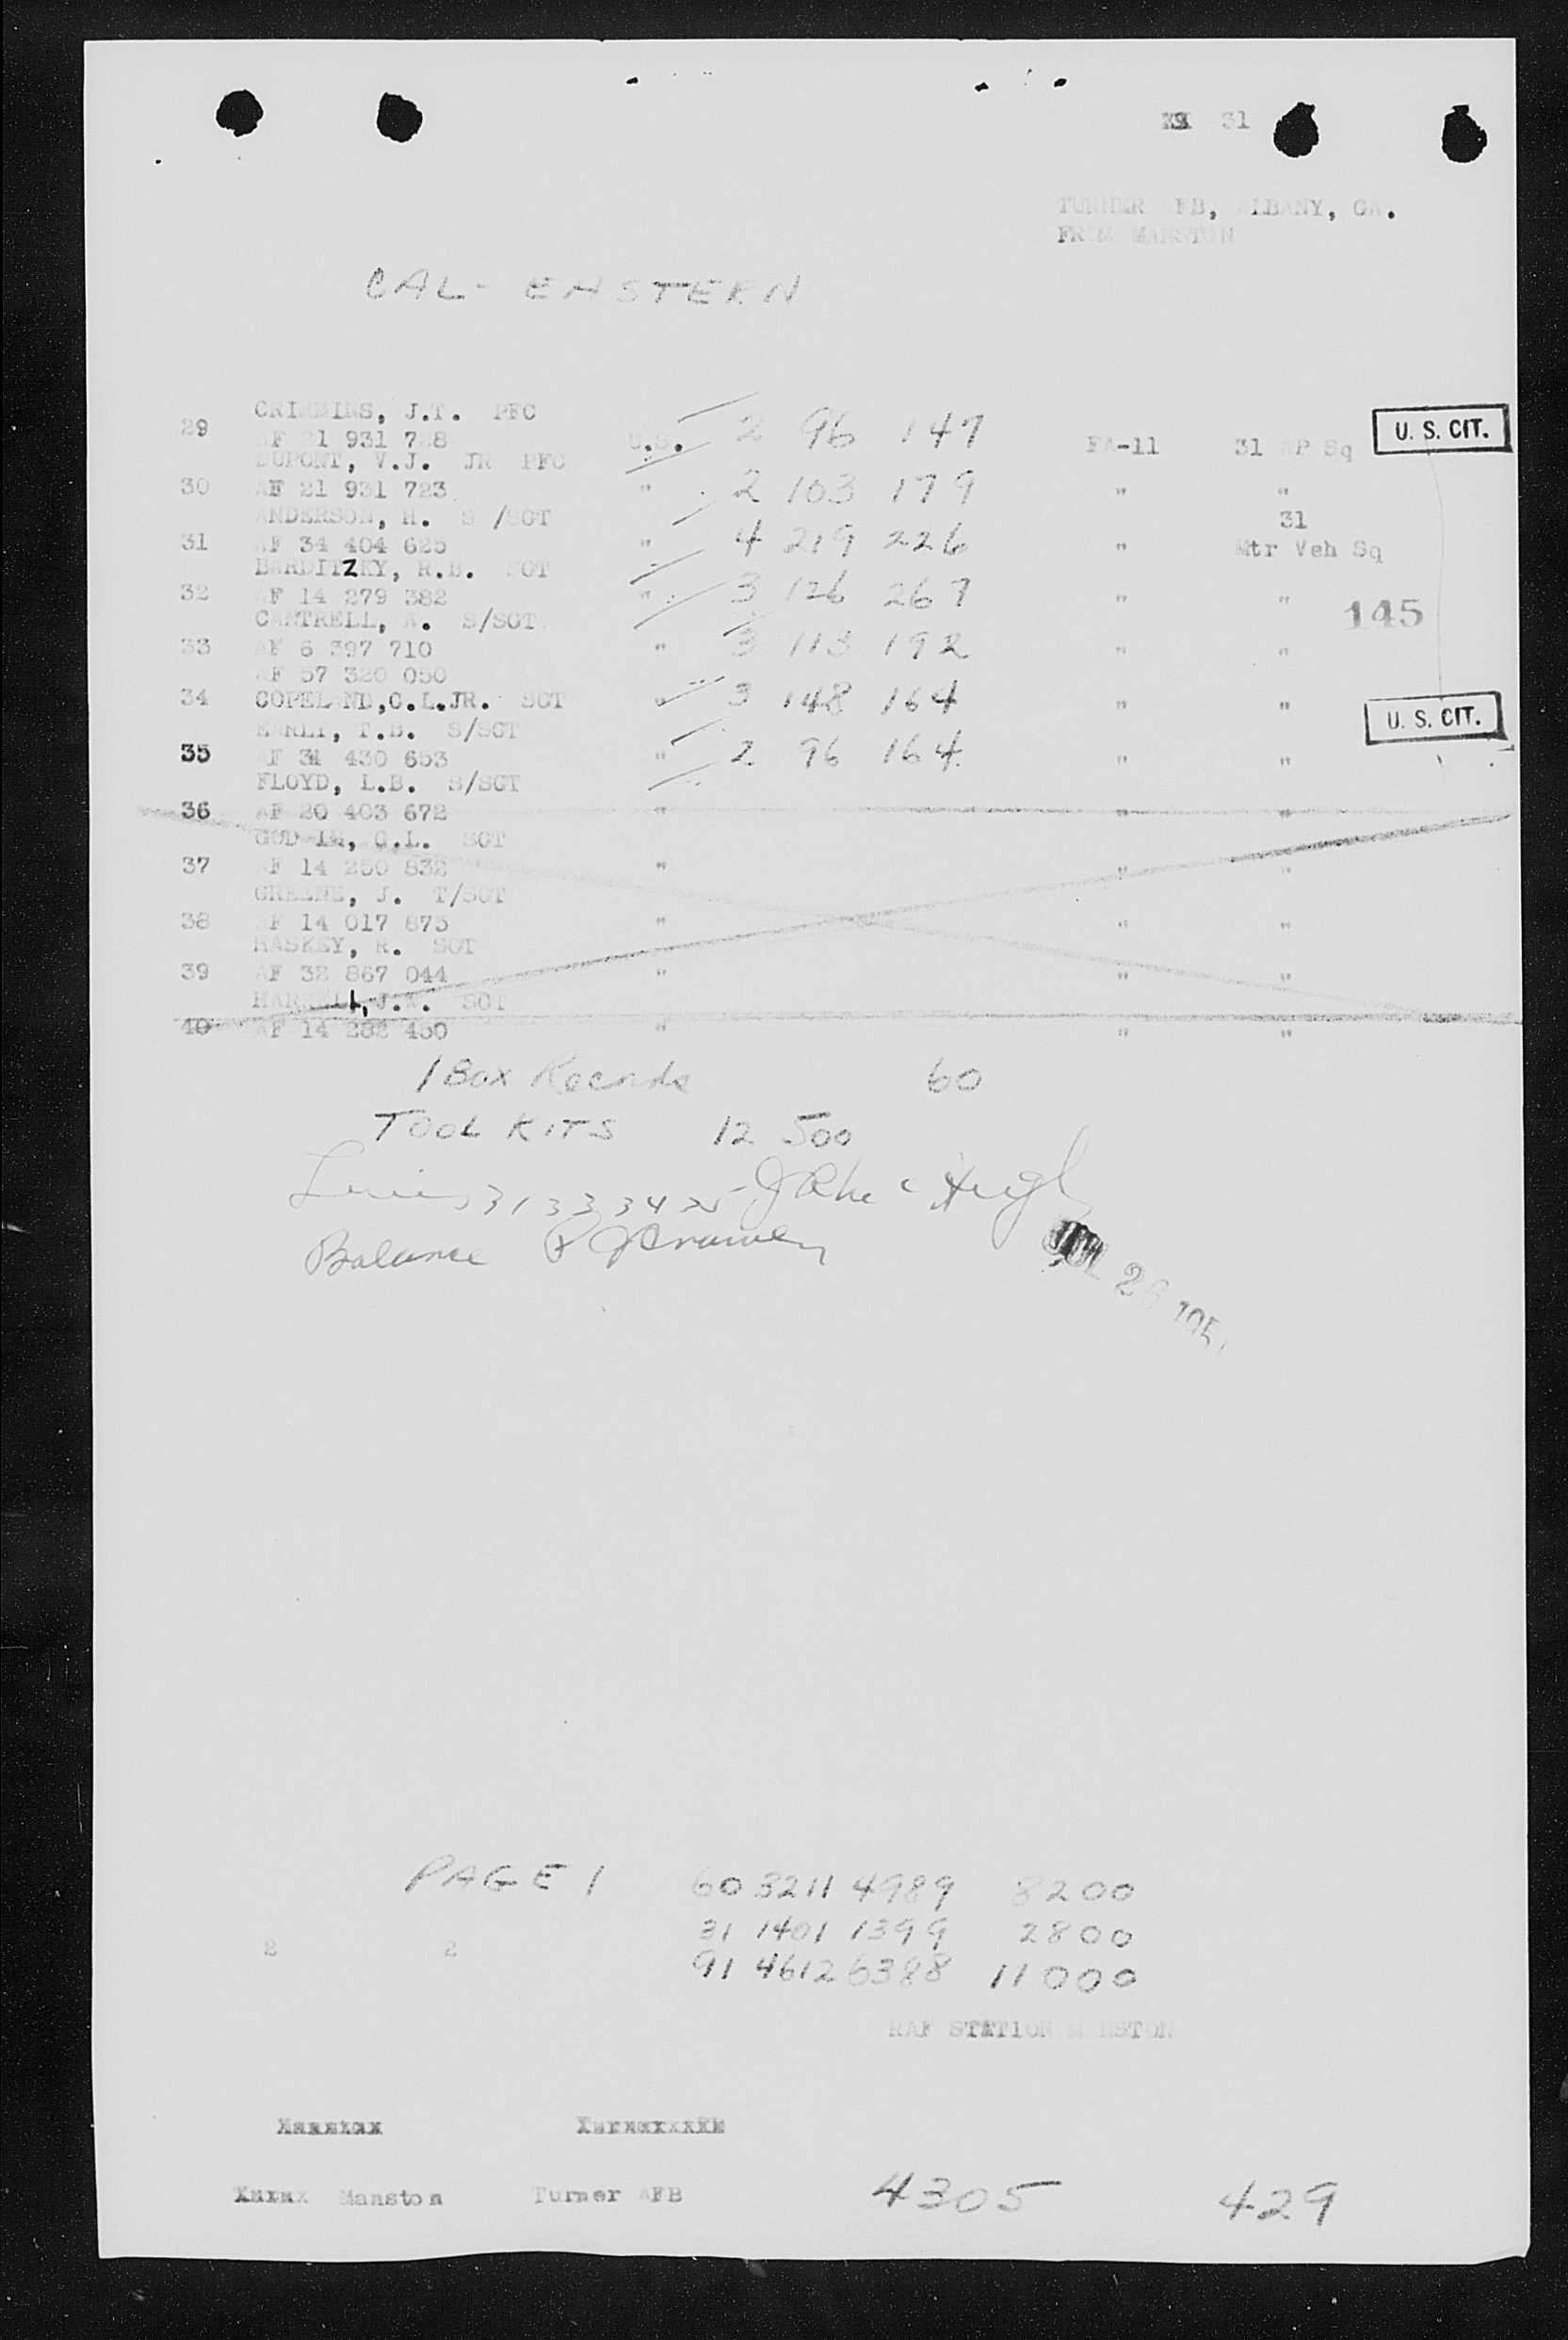 31
TURNER AFB, ALBANY, GA.
FROM MANSTON
CAL- EASTERN
CRIMMINS, J.T. PFC
29 AF 21 931 728 U.S. 2 96 147 FA-11 31 AP Sq U. S. CIT.
DUPONT, V.J. JR PFC
30 AF 21 931 723 " 2 103 179 " "
ANDERSON, H. S /SGT 31
31 AF 34 404 625 " 4 219 226 " Mtr Veh Sq
BARDITZKY, R.B. SGT
32 AF 14 279 382 " 3 126 267 " " 145
CANTRELL, A. S/SGT
33 AF 6 397 710 " 3 113 192 " "
AF 57 320 050
34 COPELAND,C.L.JR. SGT " 3 148 164 " " U. S. CIT.
EARLY, T.B. S/SGT
35 AF 34 430 653 " 2 96 164 " "
FLOYD, L.B. S/SGT
36 AF 20 403 672 " " "
GODWIN, C.L. SGT
37 AF 14 250 832 " " "
GREENE, J. T/SGT
38 AF 14 017 873 " " "
HASKEY, R. SGT
39 AF 32 867 044 " " "
J. SGT
40 AF 14 282 450 " " "
1 Box Records 60
TOOL KITS 12 500
31333425
Balance
28 195
PAGE 1 60 3211 4989 8200
31 1401 1399 2800
2 2 91 4612 6388 11000
RAF STATION MANSTON
Manston Turner AFB 4305 429